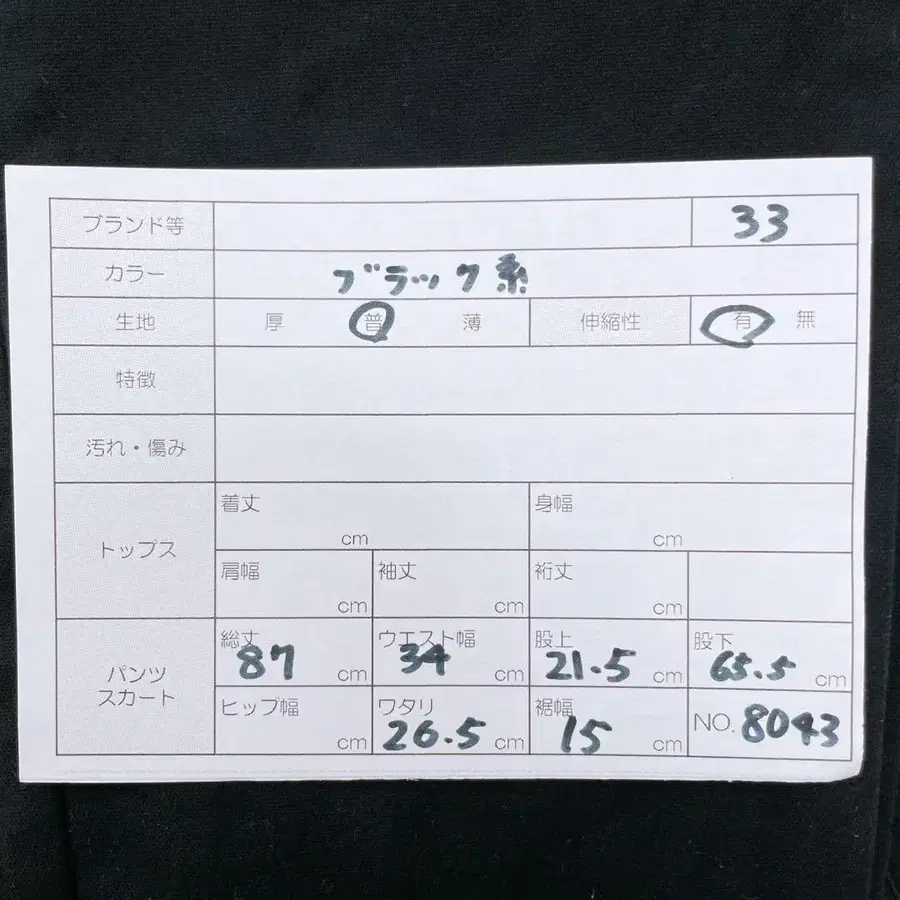 ブランド等 33
カラー ブラック系
生地 厚 普 薄 伸縮性 有 無
特徴
汚れ・傷み
トップス
着丈 cm 身幅 cm
肩幅 cm 袖丈 cm 裄丈 cm
パンツ
スカート
総丈 87 cm ウエスト幅 34 cm 股上 21.5 cm 股下 65.5 cm
ヒップ幅 cm ワタリ 26.5 cm 裾幅 15 cm NO. 8043